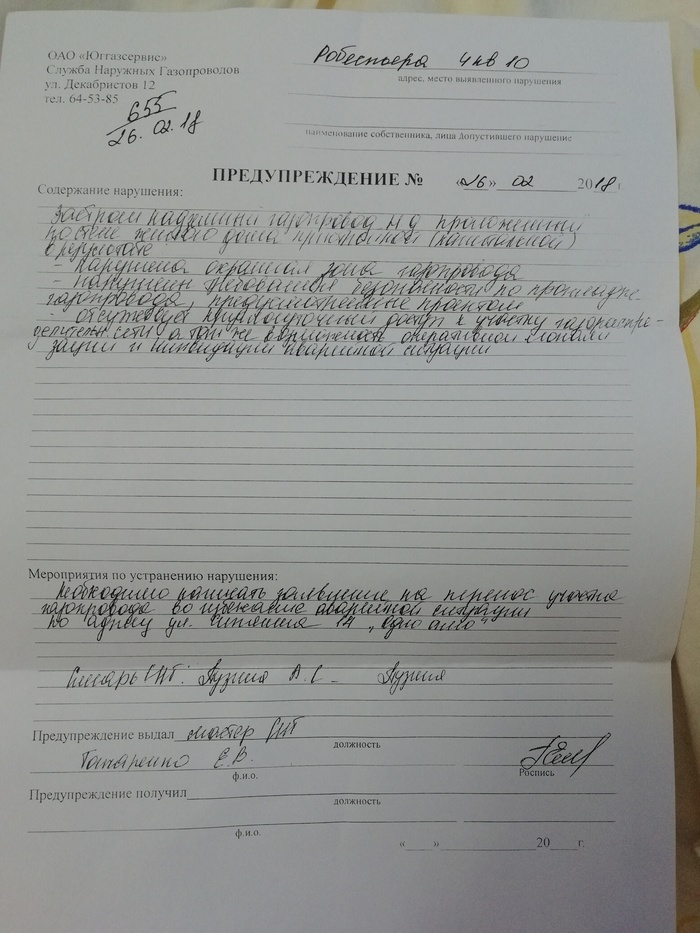 ОАО «Юггазсервис»
Служба Наружных Газопроводов
ул. Декабристов 12
тел. 64-53-85
655
26.02.18
Робеспьера 4 кв 10
адрес, место выявленного нарушения
наименование собственника, лица допустившего нарушение
ПРЕДУПРЕЖДЕНИЕ № «26» 02 2018 г
Содержание нарушения:
Застроен надземный газопровод н д проложенный
по стене жилого дома пристройкой (капитальной)
в результате
- нарушена охранная зона газопровода
- нарушены требования безопасности по
газопровода, предусмотренные проектом
- отсутствует круглосуточный доступ к участку газораспре-
делительн. сети а так же возможность оперативной локали
зации и ликвидации аварийной ситуации
Мероприятия по устранению нарушения:
Необходимо написать заявление на перенос участка
газопровода во избежание аварийной ситуации
по адресу ул. 14 „одно окно“
Слесарь СНГ: А.С -
Предупреждение выдал мастер СНГ
должность
Е.В.
ф.и.о.
Роспись
Предупреждение получил
должность
ф.и.о.
«__» 20__г.